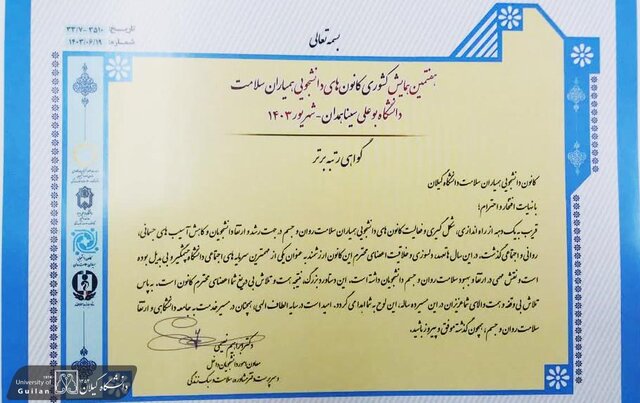 بسمه تعالی
تاریخ: ۳۳/۷-۳۵۱۰
شماره: ۱۴۰۳/۰۶/۱۹
هفتمین همایش کشوری کانون های دانشجویی همیاران سلامت
دانشگاه بوعلی سینا همدان - شهریور ۱۴۰۳
گواهی رتبه برتر
کانون دانشجویی همیاران سلامت دانشگاه گیلان
با نهایت افتخار و احترام؛
قریب به یک دهه از راه اندازی، شکل گیری و فعالیت کانون های دانشجویی همیاران سلامت روان و جسم در جهت رشد و ارتقا دانشجویان و کاهش آسیب های جسمانی،
روانی و اجتماعی گذشت. در این سال ها تعهد، دلسوزی و خلاقیت اعضای محترم این کانون ارزشمند به عنوان یکی از مهمترین سرمایه های اجتماعی دانشگاه چشمگیر و بی بدیل بوده
است و نقش مهمی در ارتقا و بهبود سلامت روان و جسم دانشجویان داشته است. این دستاورد بزرگ، نتیجه همت و تلاش بی دریغ شما اعضای محترم کانون است. به پاس
تلاش بی وقفه و همت والای شما عزیزان در این مسیر ده ساله، این لوح به شما اهدا می گردد. امید است در سایه الطاف الهی، همچنان در مسیر خدمت به جامعه دانشگاهی و ارتقا
سلامت روان و جسم، همچون گذشته موفق و پیروز باشید.
دکتر ابراهیم نعیمی
معاون امور دانشجویان داخل
و سرپرست دفتر مشاوره سلامت و سبک زندگی
University of
Guilan
دانشگاه گیلان